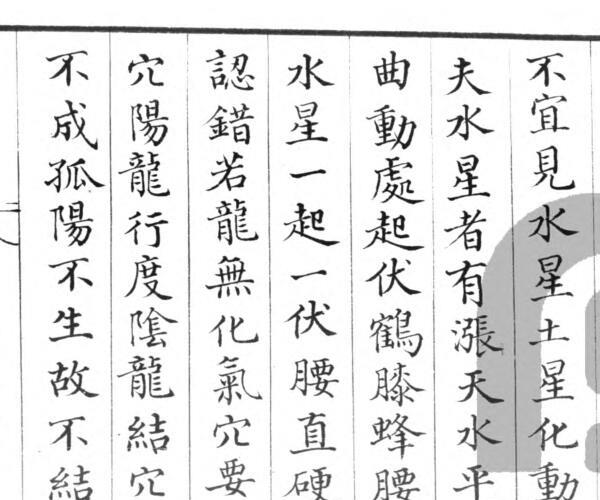 不宜見水星土星化動
夫水星者有漲天水平
曲動處起伏鶴膝蜂腰
水星一起一伏腰直硬
認錯若龍無化氣穴要
穴陽龍行度陰龍結穴
不成孤陽不生故不結